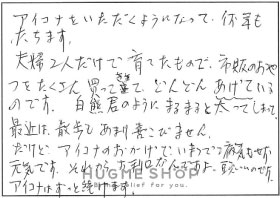 アイコナをいただくようになって、何年も
たちます。
夫婦2人だけで育てたもので、市販のおや
つをたくさん買って来ては、どんどんあげている
のです。白熊君のようにまるまると太ってしまって、
最近は、散歩もあまり喜こびません。
だけど、アイコナのおかげで、いまのところ病気もせず、
元気です。それから、お利口なんですよ。
アイコナはずっと続けます。
HUGME SHOP
relief for you.